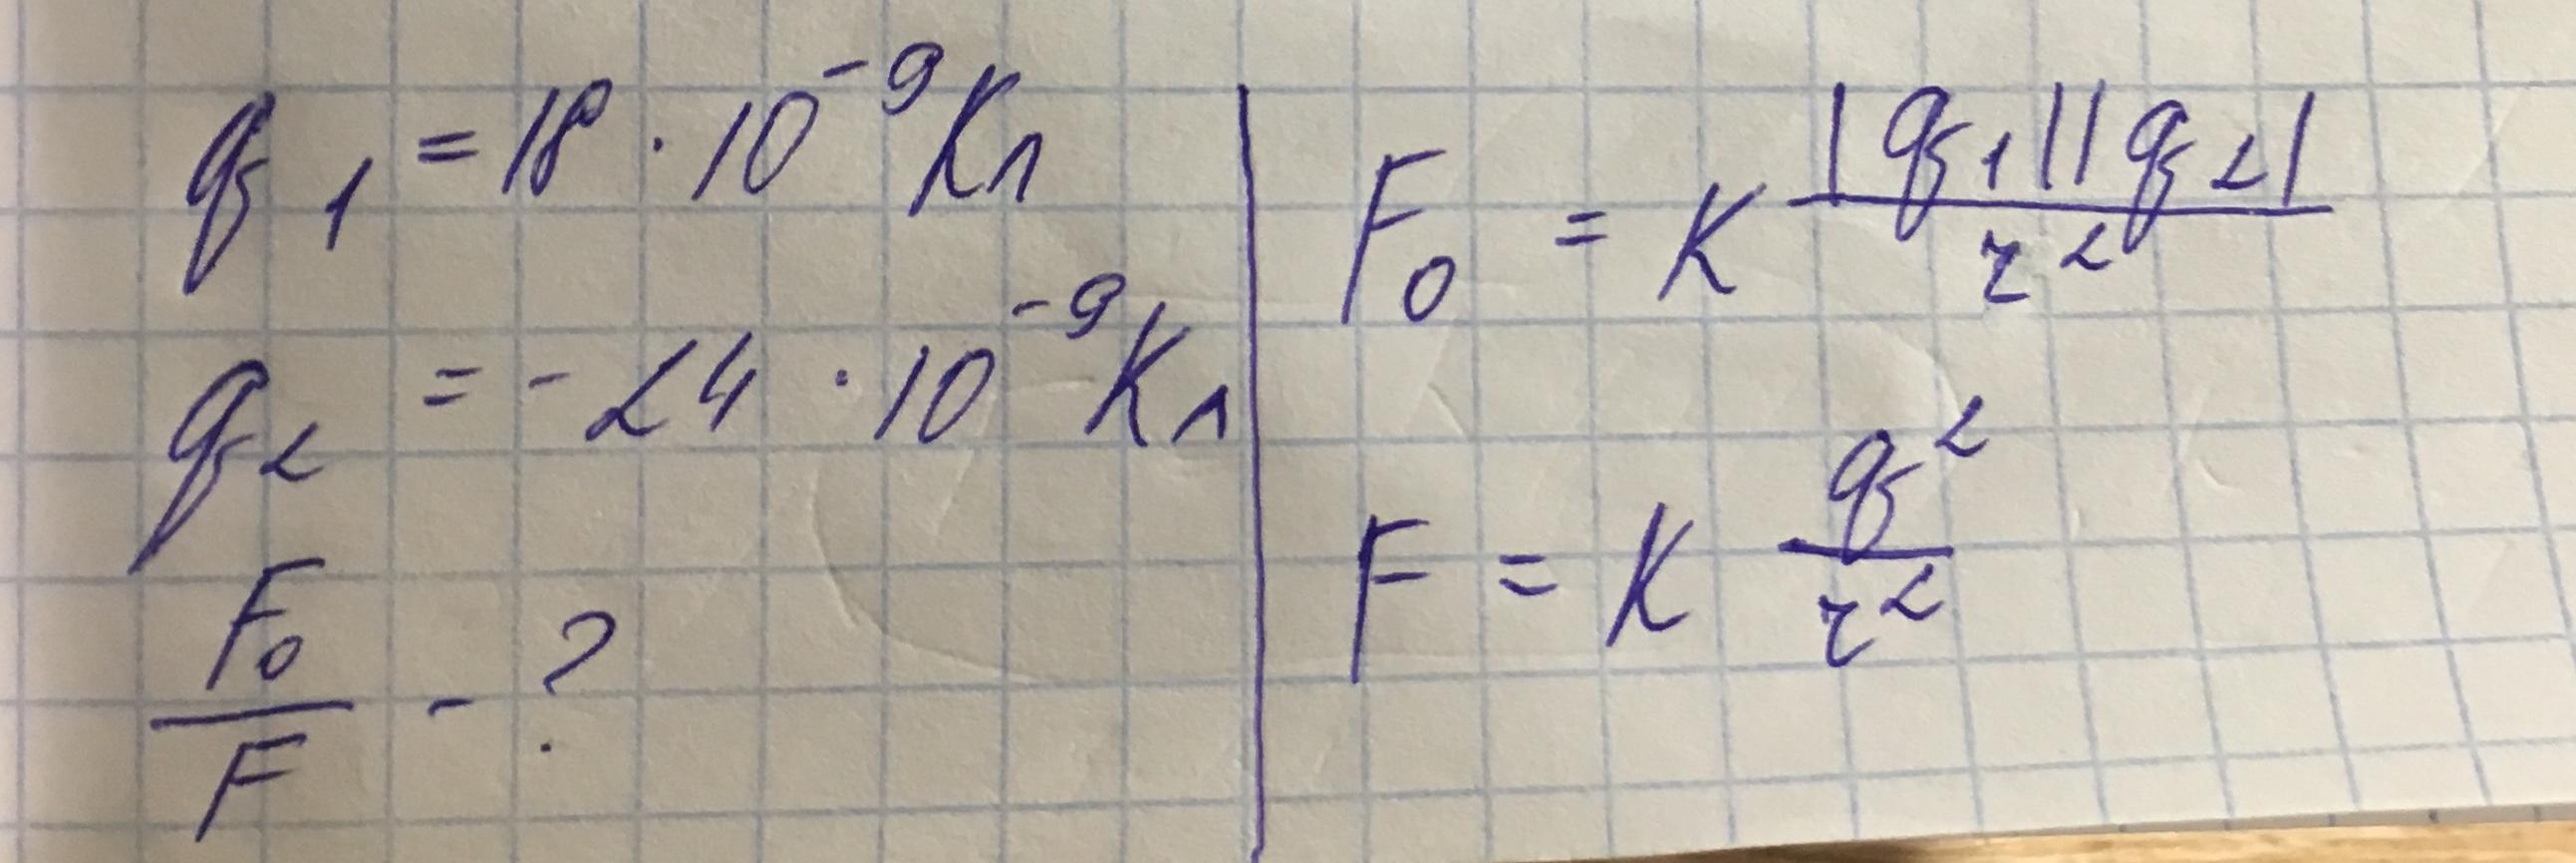 q₁ = 18 · 10⁻⁹ Кл
q₂ = - 24 · 10⁻⁹ Кл
F₀/F - ?
F₀ = K |q₁||q₂|/r²
F = K q²/r²